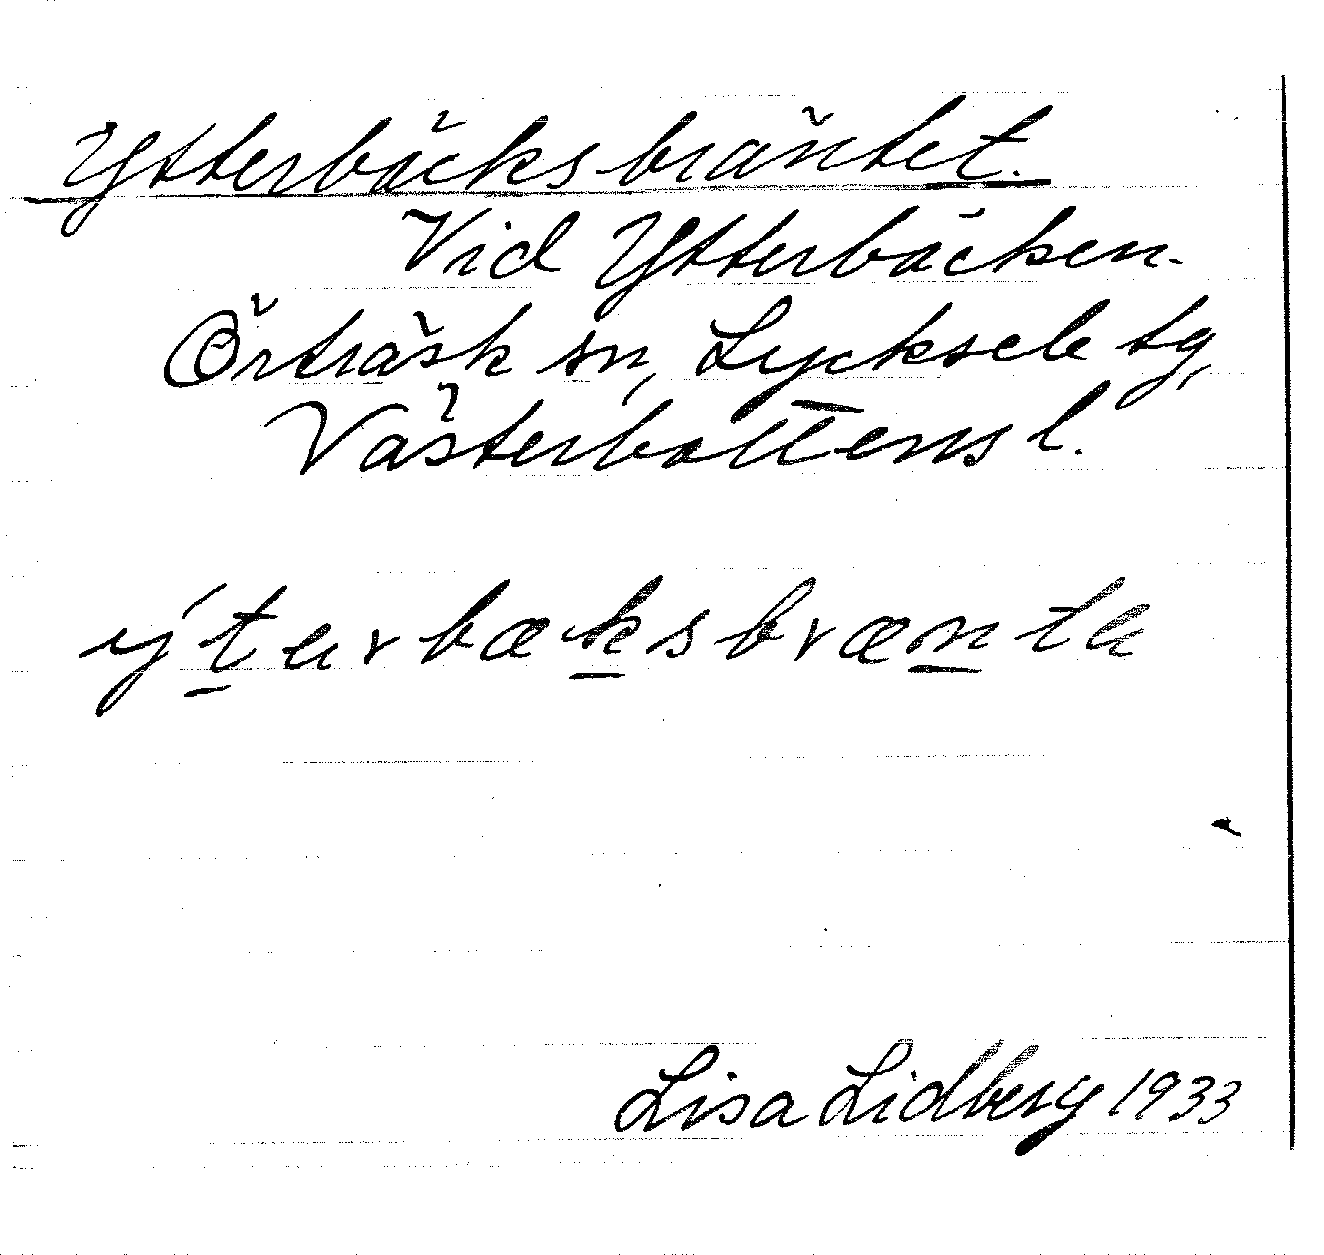 Ytterbäcksbräntet.
Vid Ytterbäcken.
Örträsk sn, Lycksele tg,
Västerbottens l.
ýt̲ərbæk̲sbræn̲tə
Lisa Lidberg 1933